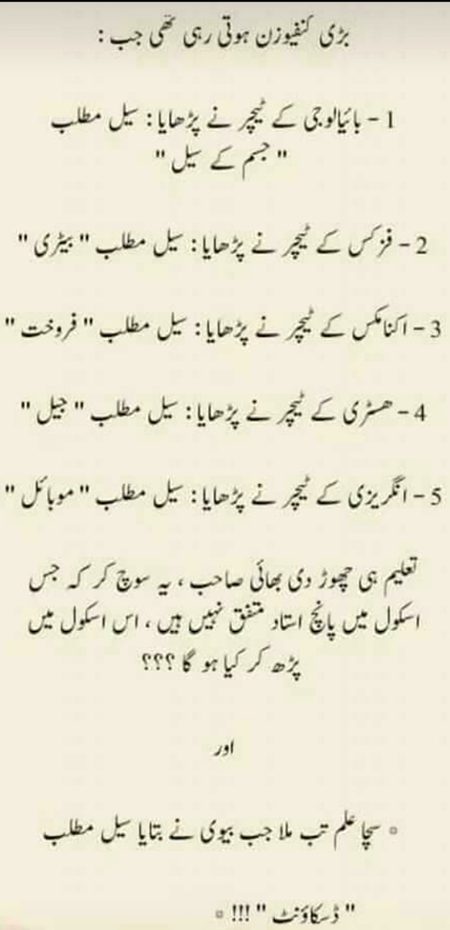 بڑی کنفیوزن ہوتی رہی تھی جب :
1 - بائیالوجی کے ٹیچر نے پڑھایا : سیل مطلب
" جسم کے سیل "
2 - فزکس کے ٹیچر نے پڑھایا : سیل مطلب " بیٹری "
3 - اکنامکس کے ٹیچر نے پڑھایا : سیل مطلب " فروخت "
4 - ھسٹری کے ٹیچر نے پڑھایا : سیل مطلب " جیل "
5 - انگریزی کے ٹیچر نے پڑھایا : سیل مطلب " موبائل "
تعلیم ہی چھوڑ دی بھائی صاحب ، یہ سوچ کر کہ جس
اسکول میں پانچ استاد متفق نہیں ہیں ، اس اسکول میں
پڑھ کر کیا ہو گا ؟؟؟
اور
° سچا علم تب ملا جب بیوی نے بتایا سیل مطلب
" ڈسکاؤنٹ " !!! °